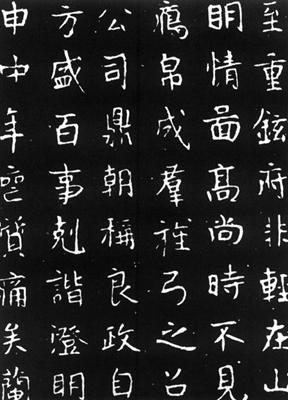 至重鉉府非輕在山
明情啚高尚時不見
鴈帛成羣旌弓之召
公司鼎朝稱良政自
方盛百事剋諧澄明
申中年質痛矣蘭